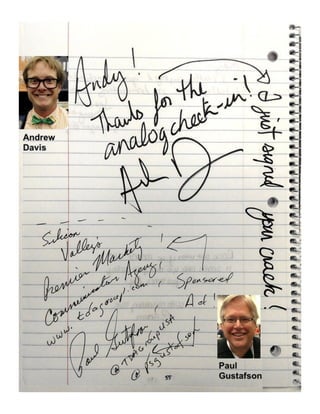 Andy!
Thanks for the
analog check-in!
I just signed your crack!
Andrew
Davis
Silicon
Valleys
Premier Marketing
Communication Agency
www.tdagroup.com
Sponsored
Ad!
Paul Gustafson
@TDAGroupUSA
@psgustafson
Paul
Gustafson